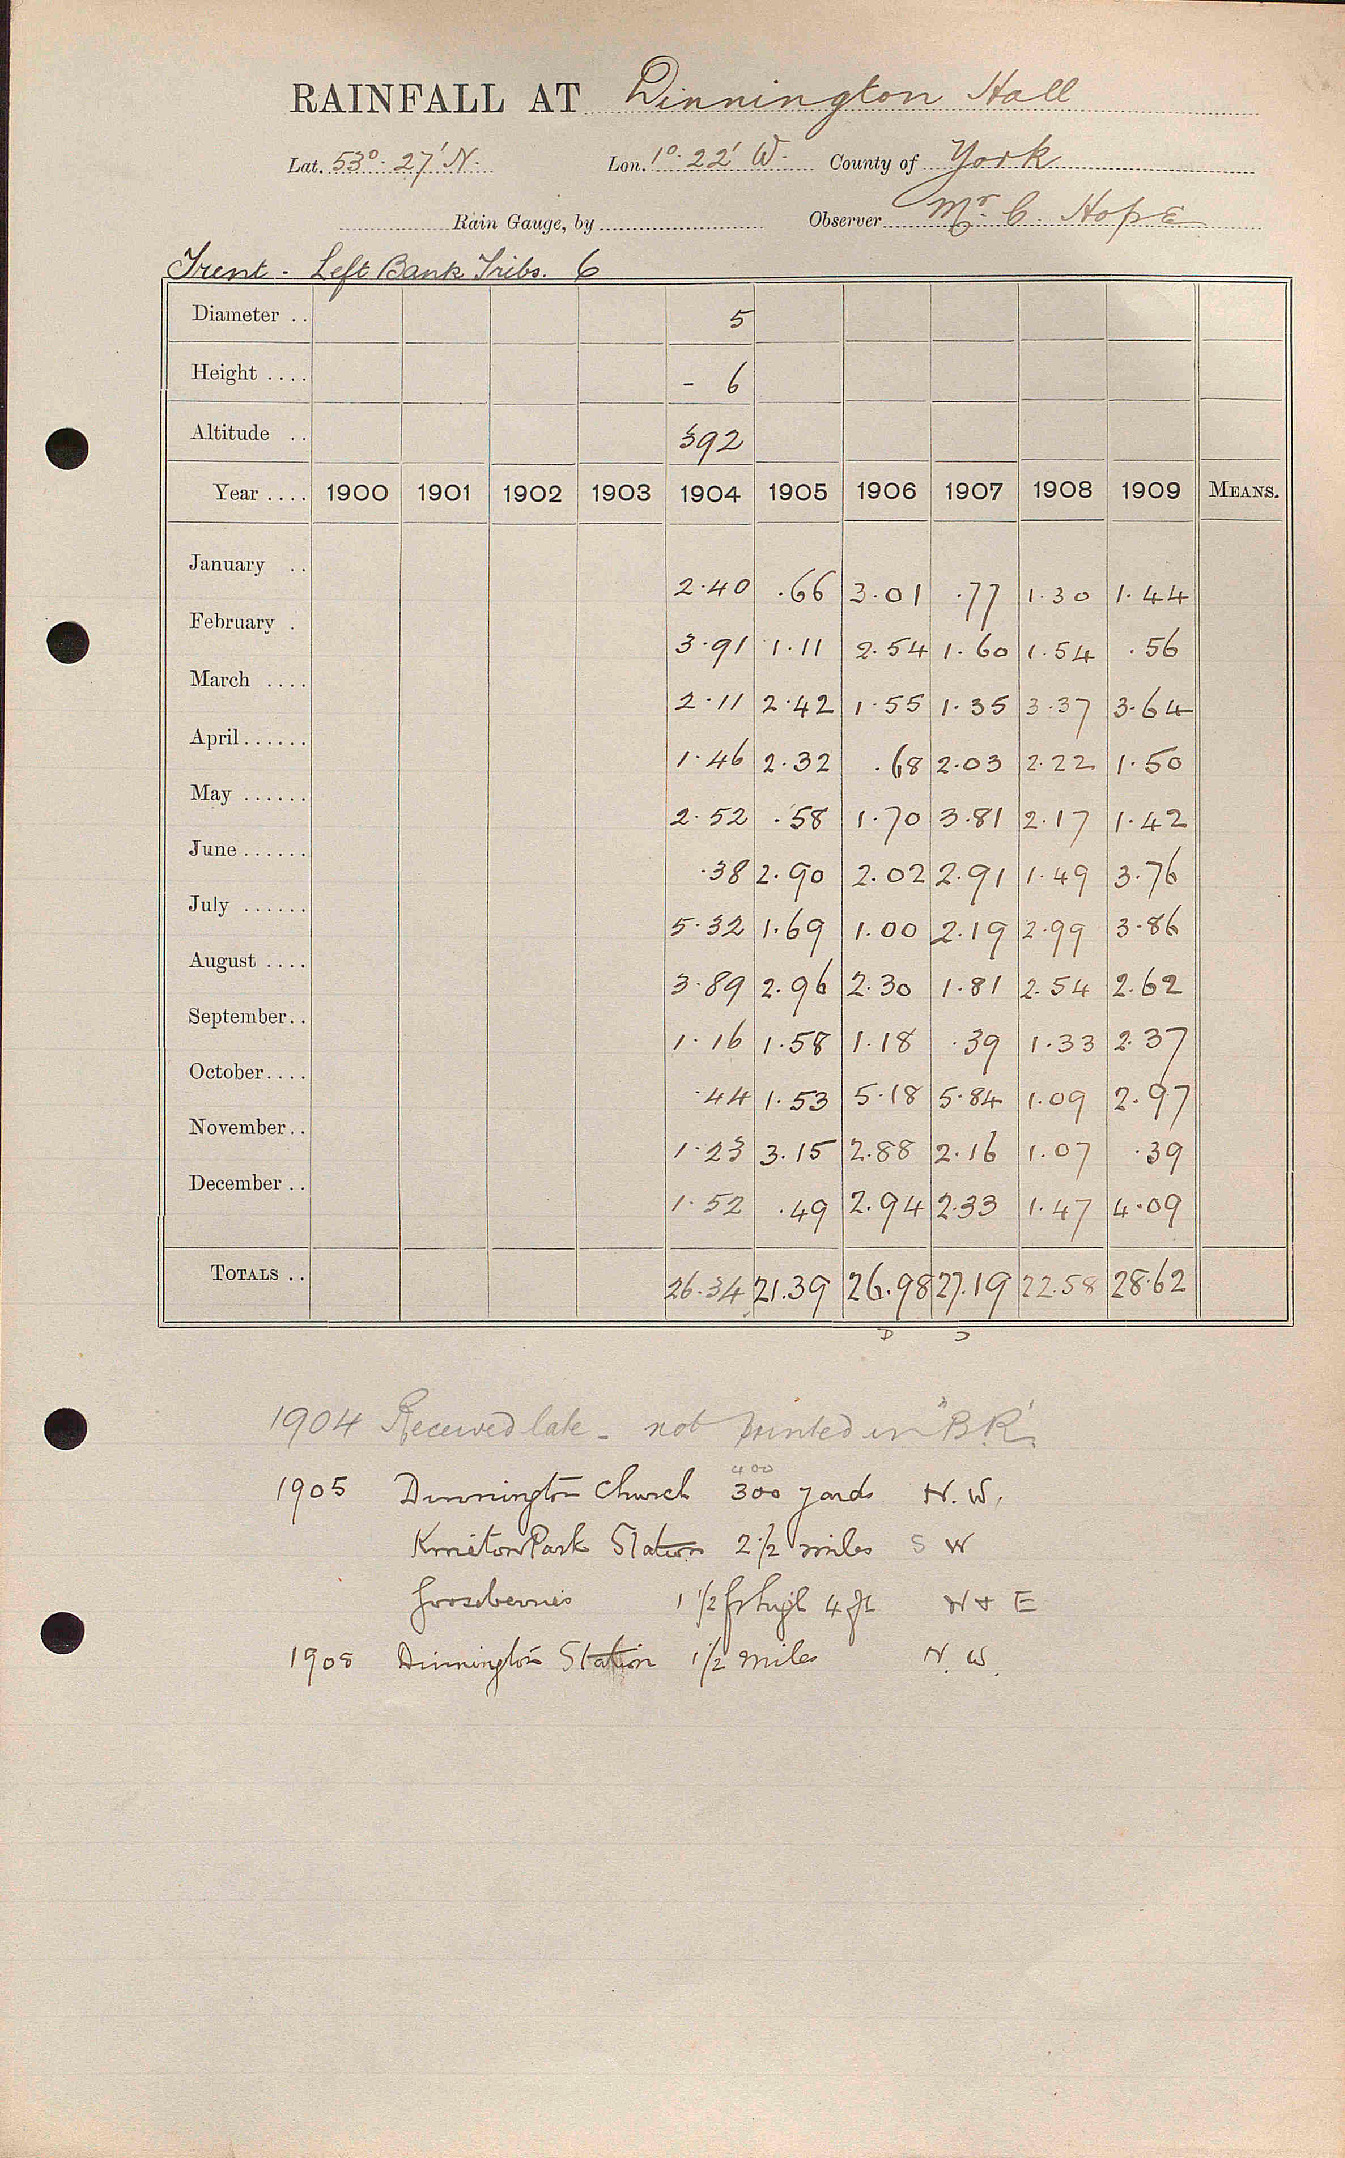 RAINFALL AT Dinnington Hall
Lat. 53° 27' N. Lon. 1° 22' W. County of York
Rain Gauge, by Observer Mr. C. Hope
Trent - Left Bank Tribs. 6
Diameter .. 5
Height .... - 6
Altitude .. 392
Year .... 1900 1901 1902 1903 1904 1905 1906 1907 1908 1909 MEANS.
January .. 2.40 .66 3.01 .77 1.30 1.44
February . 3.91 1.11 2.54 1.60 1.54 .56
March .... 2.11 2.42 1.55 1.35 3.37 3.64
April...... 1.46 2.32 .68 2.03 2.22 1.50
May ...... 2.52 .58 1.70 3.81 2.17 1.42
June...... .38 2.90 2.02 2.91 1.49 3.76
July ...... 5.32 1.69 1.00 2.19 2.99 3.86
August .... 3.89 2.96 2.30 1.81 2.54 2.62
September.. 1.16 1.58 1.18 .39 1.33 2.37
October.... .44 1.53 5.18 5.84 1.09 2.97
November.. 1.23 3.15 2.88 2.16 1.07 .39
December .. 1.52 .49 2.94 2.33 1.47 4.09
TOTALS .. 26.34 21.39 26.98 27.19 22.58 28.62
D
1904 Received late - not printed in "B.R."
400
1905 Dinnington Church 300 yards N.W.
Kiveton Park Station 2 1/2 miles S W
Gooseberries 1 1/2 ft high 4 ft N + E
1908 Dinnington Station 1 1/2 miles N.W.